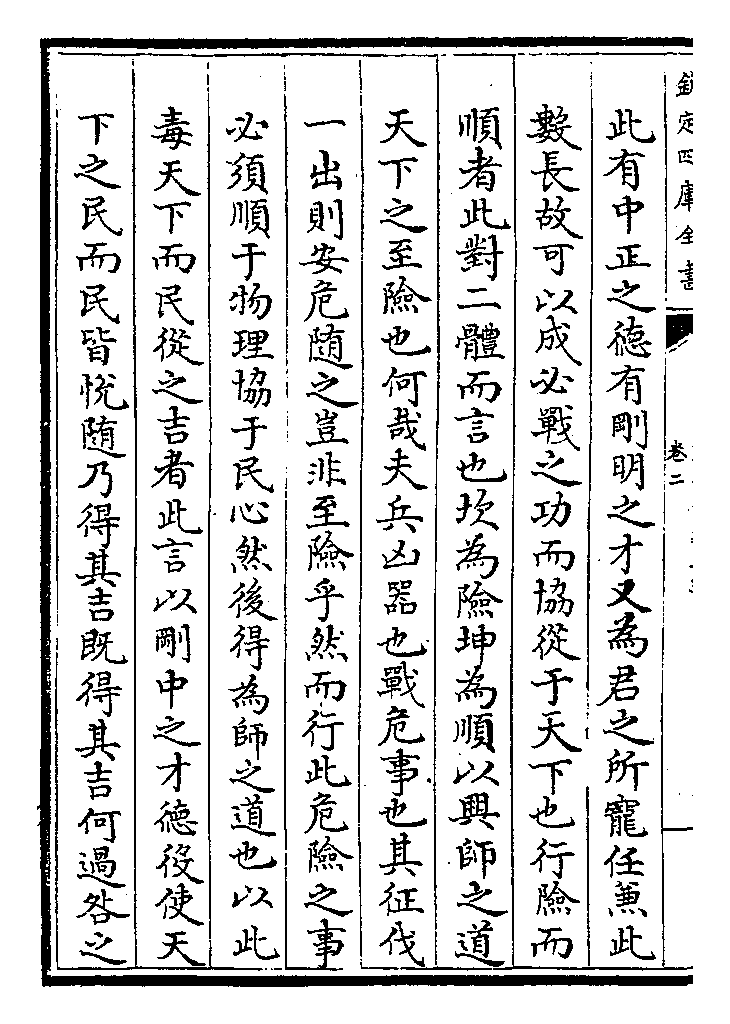 欽定四庫全書
卷二
此有中正之德有剛明之才又為君之所寵任兼此
數長故可以成必戰之功而協從于天下也行險而
順者此對二體而言也坎為險坤為順以興師之道
天下之至險也何哉夫兵凶器也戰危事也其征伐
一出則安危随之豈非至險乎然而行此危險之事
必須順于物理協于民心然後得為師之道也以此
毒天下而民從之吉者此言以剛中之才德役使天
下之民而民皆悅随乃得其吉既得其吉何過咎之